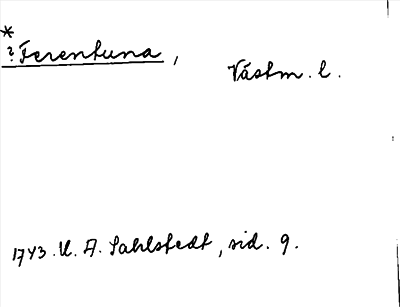 *
? Ferentuna, Västm. l.
1743. U. A. Sahlstedt, sid. 9.